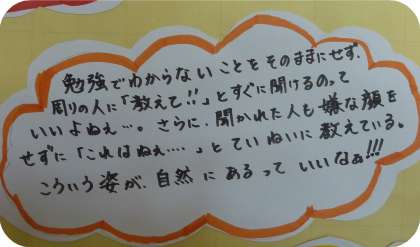 勉強でわからないことをそのままにせず、
周りの人に「教えて!!」とすぐに聞けるのって
いいよねぇ…。さらに、聞かれた人も嫌な顔を
せずに「これはねぇ‥‥」とていねいに教えている。
こういう姿が、自然にあるっていいなぁ!!!